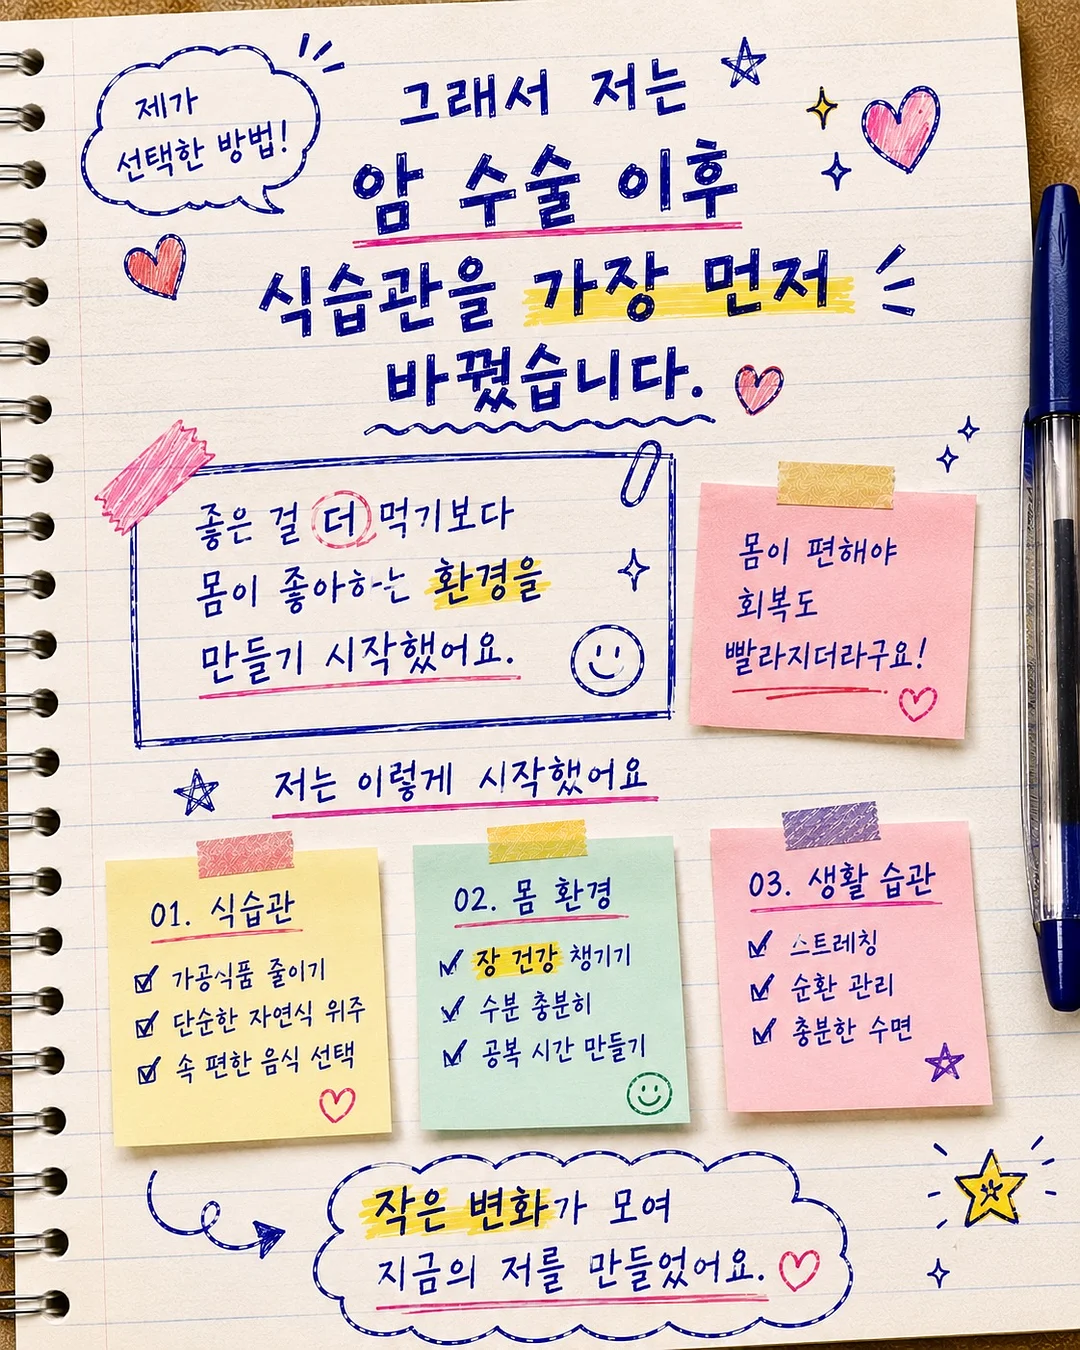 제가
선택한 방법!
그래서 저는
암 수술 이후
식습관을 가장 먼저
바꿨습니다.
좋은 걸 더 먹기보다
몸이 좋아하는 환경을
만들기 시작했어요.
몸이 편해야
회복도
빨라지더라구요!
저는 이렇게 시작했어요
01. 식습관
가공식품 줄이기
단순한 자연식 위주
속 편한 음식 선택
02. 몸 환경
장 건강 챙기기
수분 충분히
공복 시간 만들기
03. 생활 습관
스트레칭
순환 관리
충분한 수면
작은 변화가 모여
지금의 저를 만들었어요.